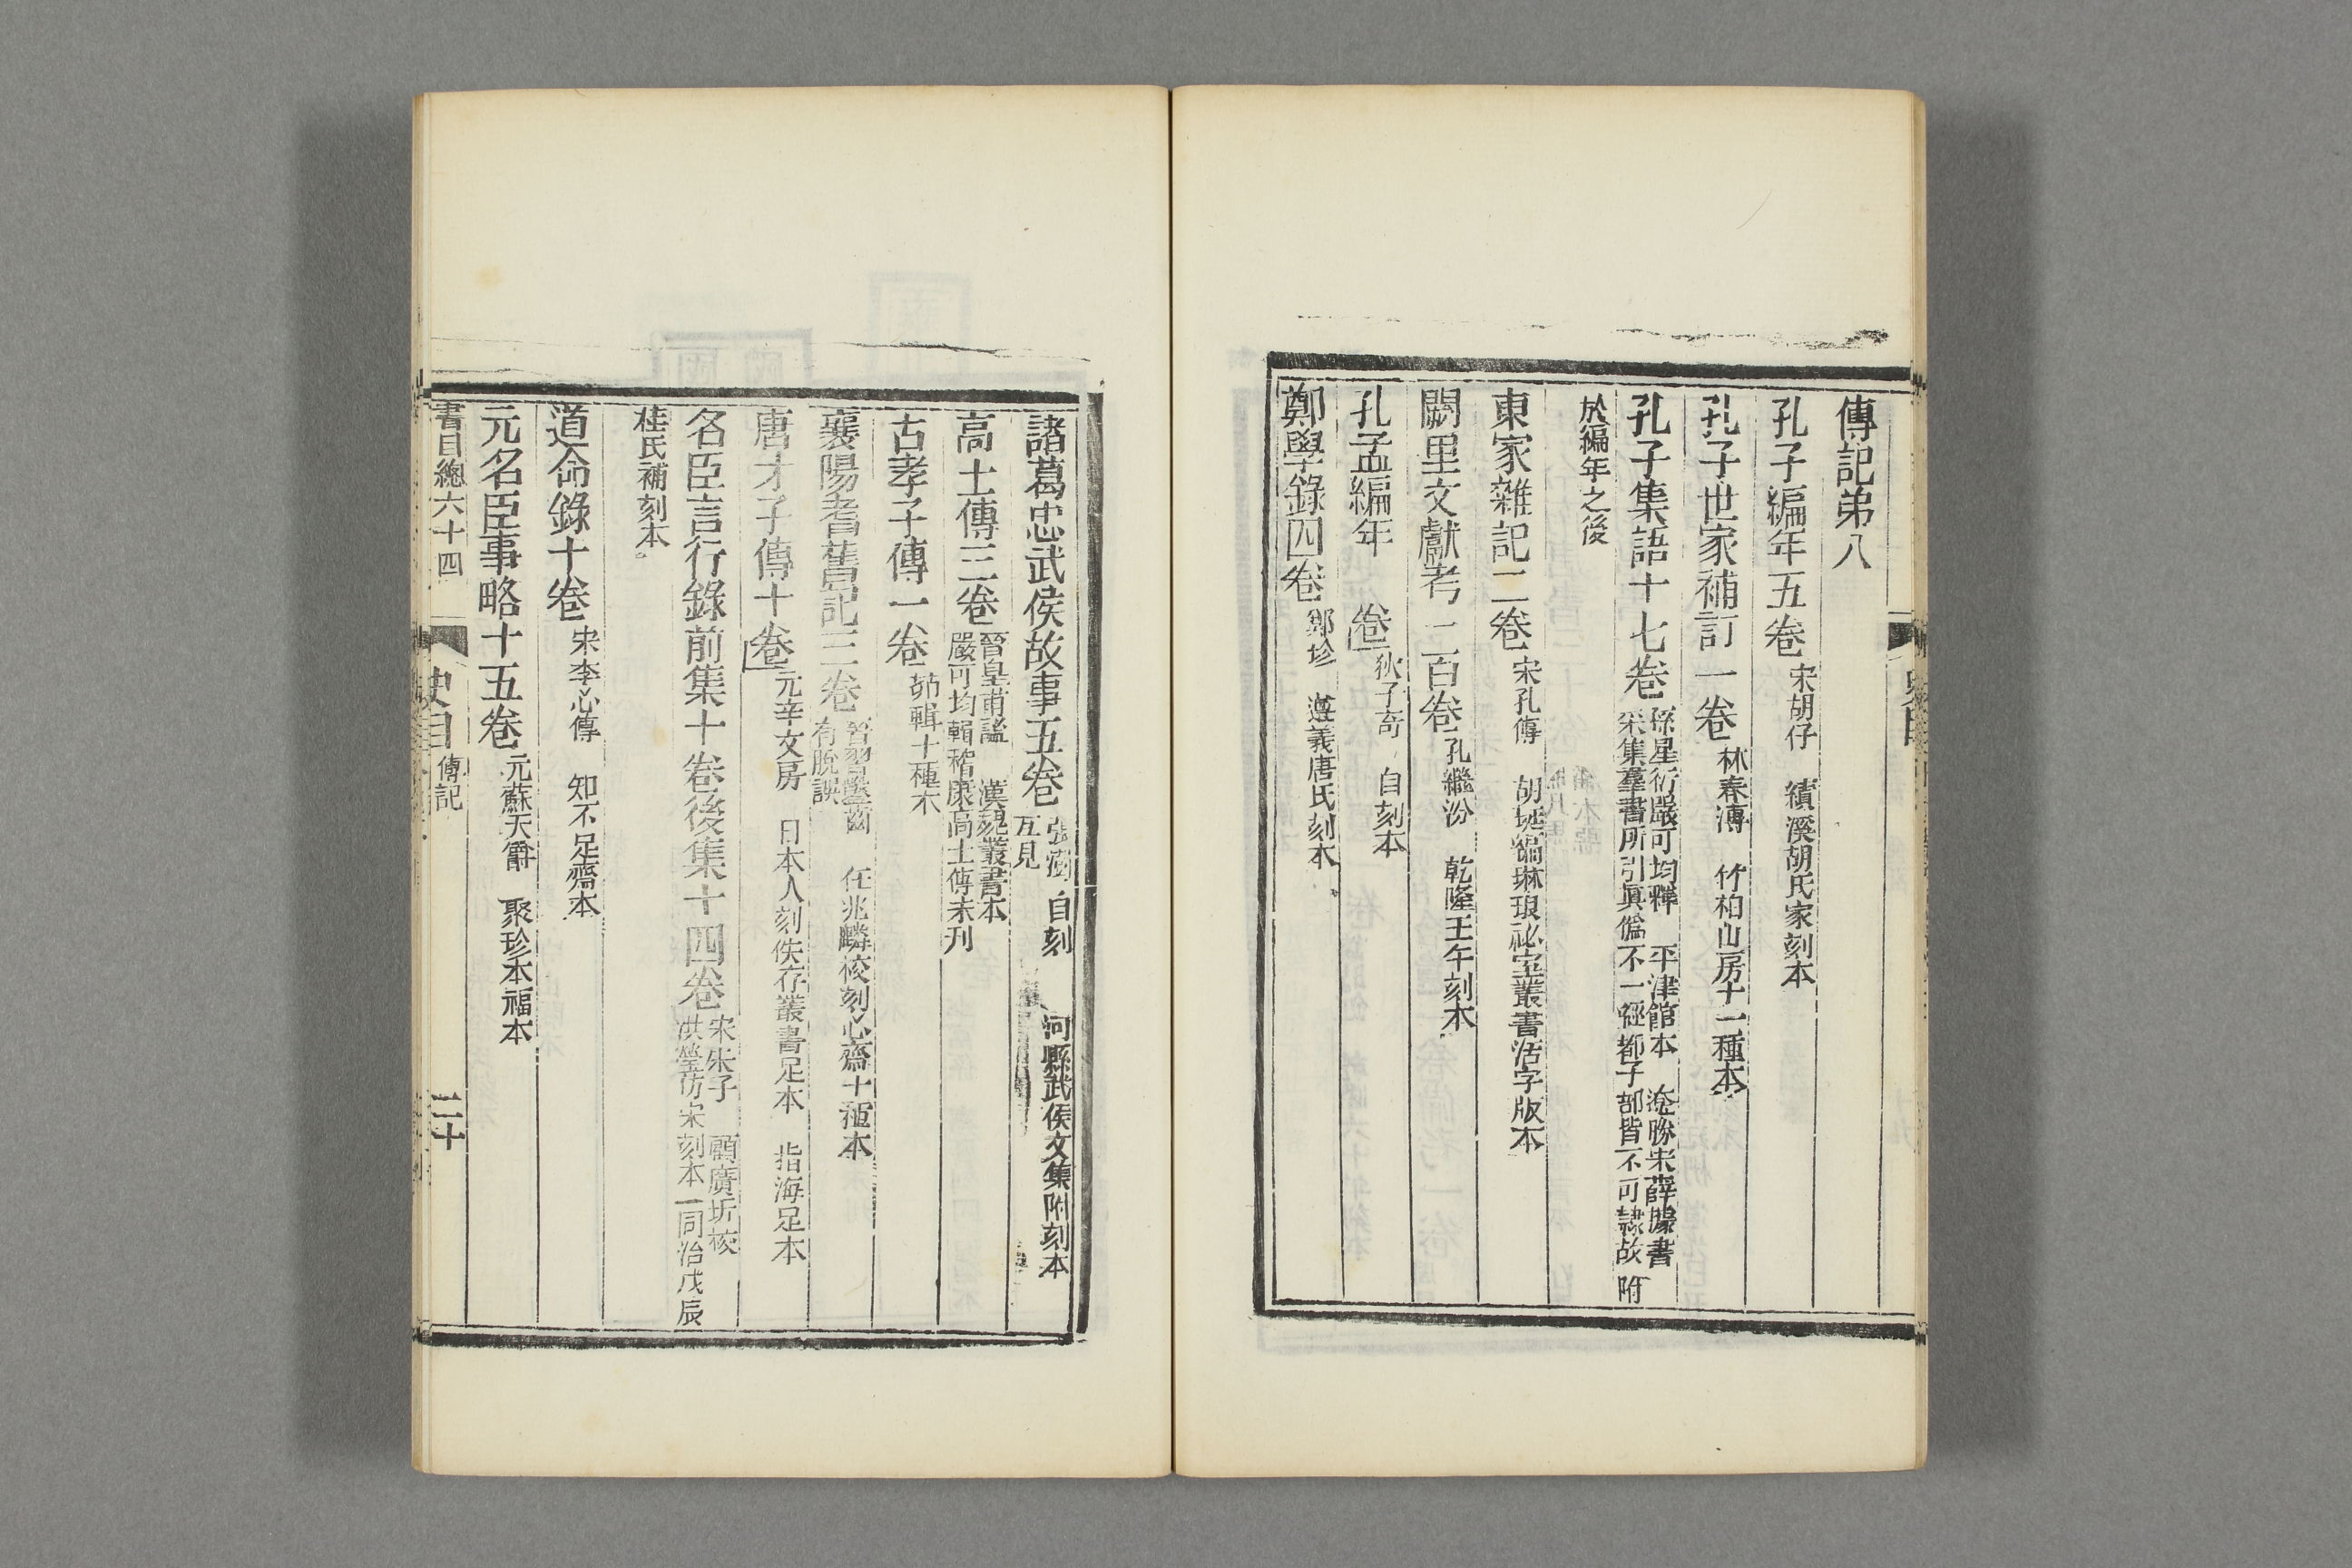 傳記弟八
孔子編年五卷 宋胡仔 績溪胡氏家刻本
孔子世家補訂一卷 林春溥 竹柏山房十一種本
孔子集語十七卷 孫星衍嚴可均輯 平津館本 遠勝宋薛據書
采集羣書所引眞僞不一經都子部皆不可隸故附
於編年之後
東家雜記二卷 宋孔傳 胡珽編琳琅祕室叢書活字版本
闕里文獻考一百卷 孔繼汾 乾隆壬午刻本
孔孟編年 卷 狄子奇 自刻本
鄭學錄四卷 鄭珍 遵義唐氏刻本
諸葛忠武侯故事五卷 張澍 自刻 河縣武侯文集附刻本
互見
高士傳三卷 晉皇甫謐 漢魏叢書本
嚴可均輯嵆康高士傳未刊
古孝子傳一卷 茆輯十種本
襄陽耆舊記三卷 晉習鑿齒 任兆麟校刻心齋十種本
有脫誤
唐才子傳十卷 元辛文房 日本人刻佚存叢書足本 指海足本
名臣言行錄前集十卷後集十四卷 宋朱子 顧廣圻校
洪瑩仿宋刻本 同治戊辰
桂氏補刻本
道命錄十卷 宋李心傳 知不足齋本
元名臣事略十五卷 元蘇天爵 聚珍本福本
書目總六十四 史目 傳記 二十